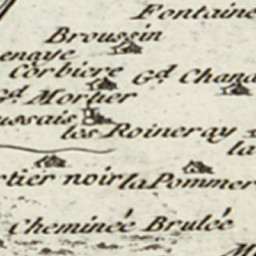 Fontaine
Broussin
enaye
Corbiere
Gd. Chand
Gd. Mortier
ussais
les Roineray
la
rtier noir
la Pommer
Cheminée Brulée